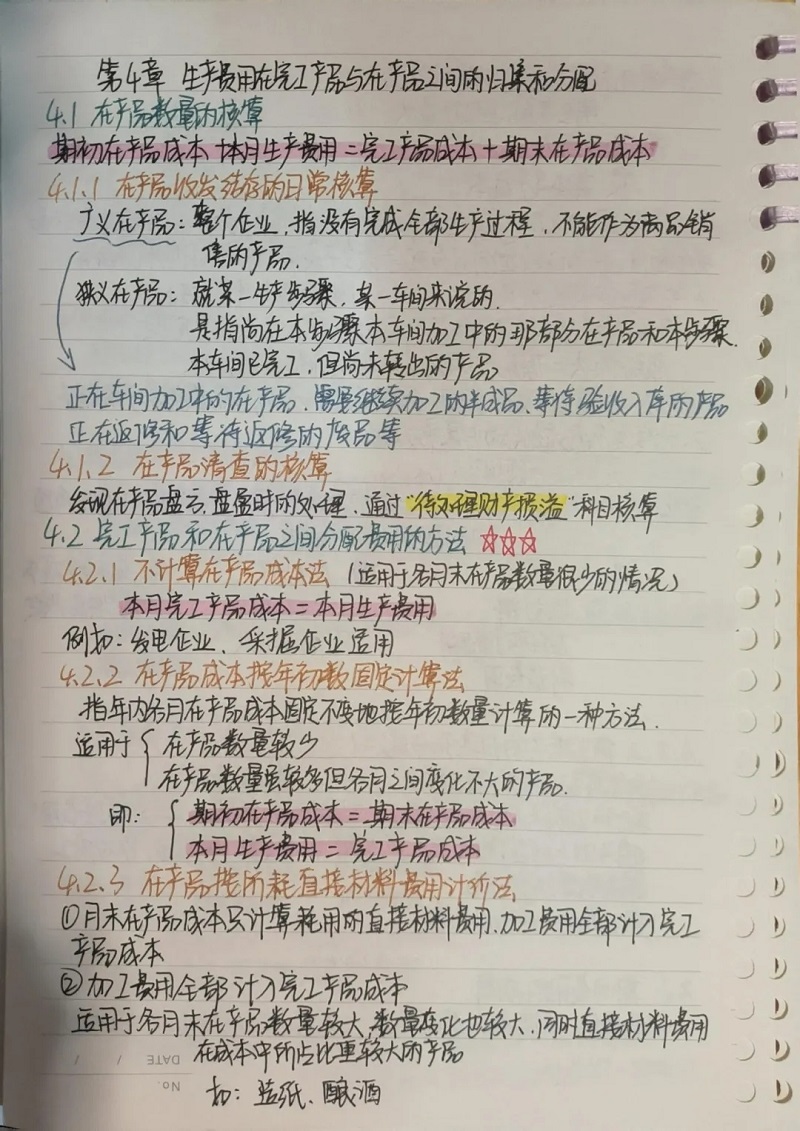 第4章 生产费用在完工产品与在产品之间的归集和分配
4.1 在产品数量的核算
期初在产品成本+本月生产费用=完工产品成本+期末在产品成本
4.1.1 在产品收发结存的日常核算
广义在产品:整个企业,指没有完成全部生产过程,不能作为商品销
售的产品.
狭义在产品:就某一生产步骤,某一车间来说的.
是指尚在本步骤本车间加工中的那部分在产品和本步骤.
本车间已完工,但尚未转出的产品
正在车间加工中的在产品、需要继续加工的半成品、等待验收入库的产品
正在返修和等待返修的废品等
4.1.2 在产品清查的核算
发现在产品盘亏、盘盈时的处理,通过"待处理财产损溢"科目核算
4.2 完工产品和在产品之间分配费用的方法 ☆☆☆
4.2.1 不计算在产品成本法(适用于各月末在产品数量很少的情况)
本月完工产品成本=本月生产费用
例如:发电企业、采掘企业适用
4.2.2 在产品成本按年初数固定计算法
指年内各月在产品成本固定不变地按年初数量计算的一种方法.
适用于{在产品数量较少
在产品数量虽较多但各月之间变化不大的产品.
即:{期初在产品成本=期末在产品成本
本月生产费用=完工产品成本
4.2.3 在产品按所耗直接材料费用计价法
①月末在产品成本只计算耗用的直接材料费用,加工费用全部计入完工
产品成本
②加工费用全部计入完工产品成本
适用于各月末在产品数量较大,数量变化也较大,同时直接材料费用
在成本中所占比重较大的产品
如:造纸、酿酒
DATE / /
No.